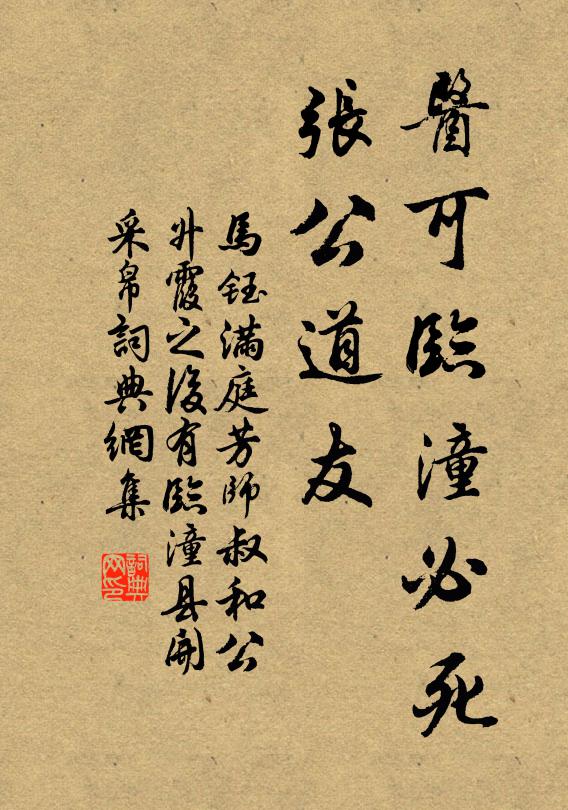 醫可臨潼必死
張公道友
馬鈺滿庭芳師叔和公
升霞之後有臨潼县開
采帛詞典網集
詞典
网印